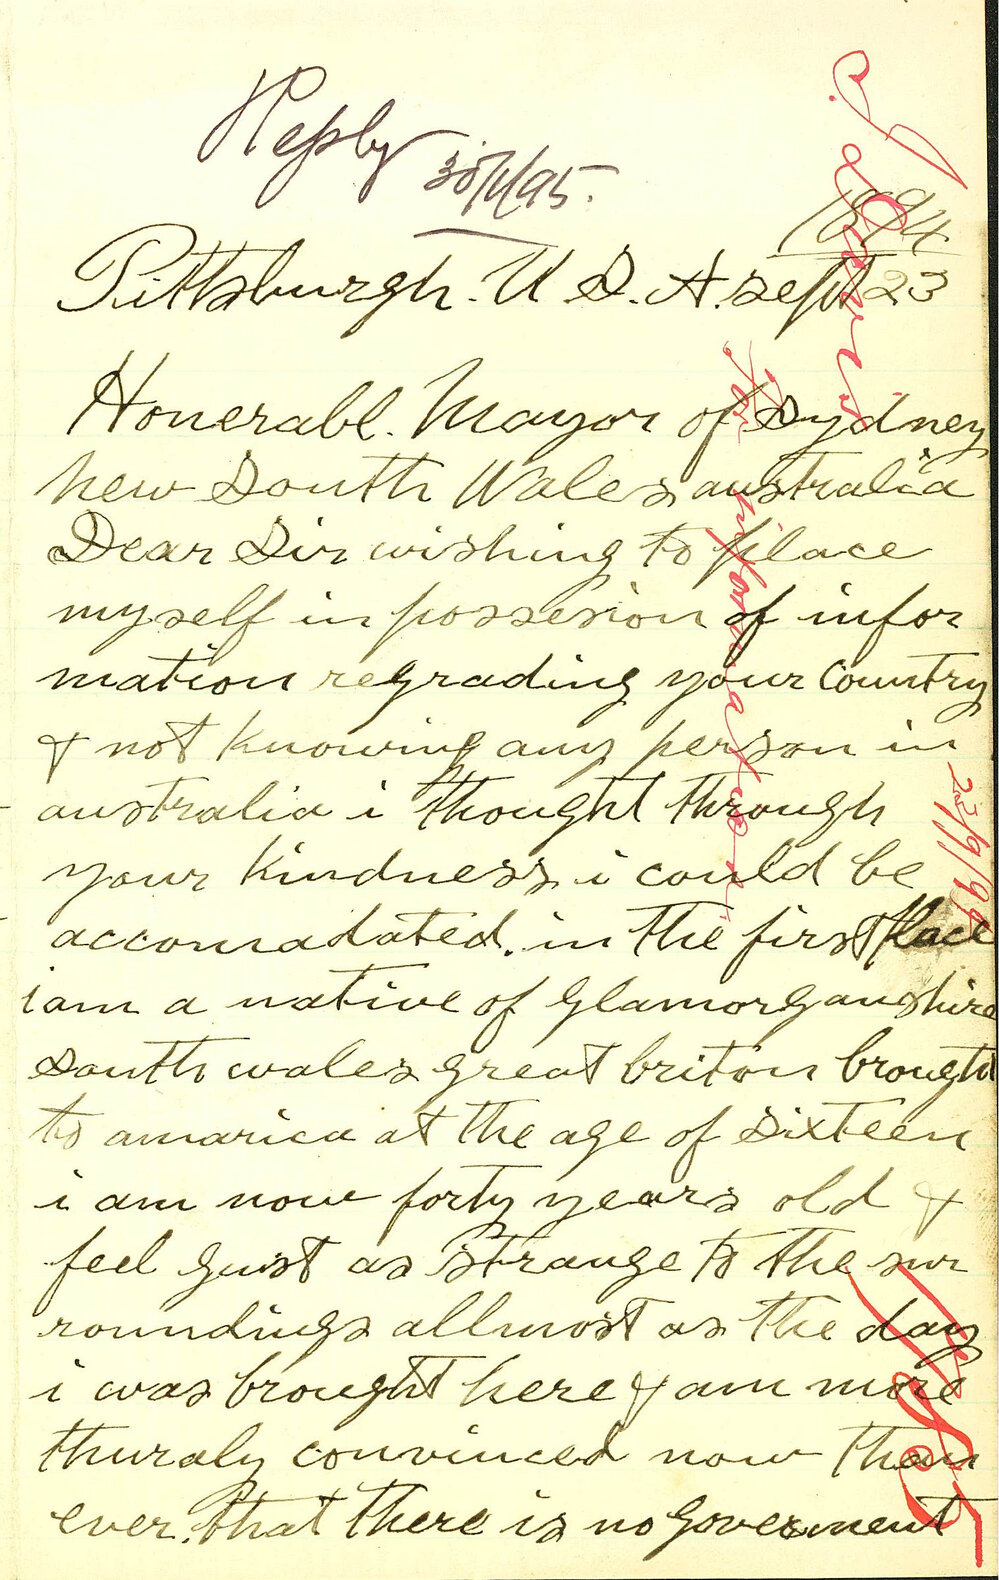 Reply
30/1/95.
1894
Pittsburgh. U S. A. sept 23
Honerabl. Mayor of Sydney
new South Wales australia
Dear Sir wishing to place
myself in possesion of infor
mation regrading your Country
& not knowing any person in
australia i thought through
your kindness i could be
accomadated. in the first place
i am a native of glamorganshire
south wales great briton brought
to amarica at the age of sixteen
i am now forty years old &
feel gust as strange to the sur
roundings allmost as the day
i was brought here & am more
thuraly convinced now than
ever. that there is no goverment
for information
23/9/94